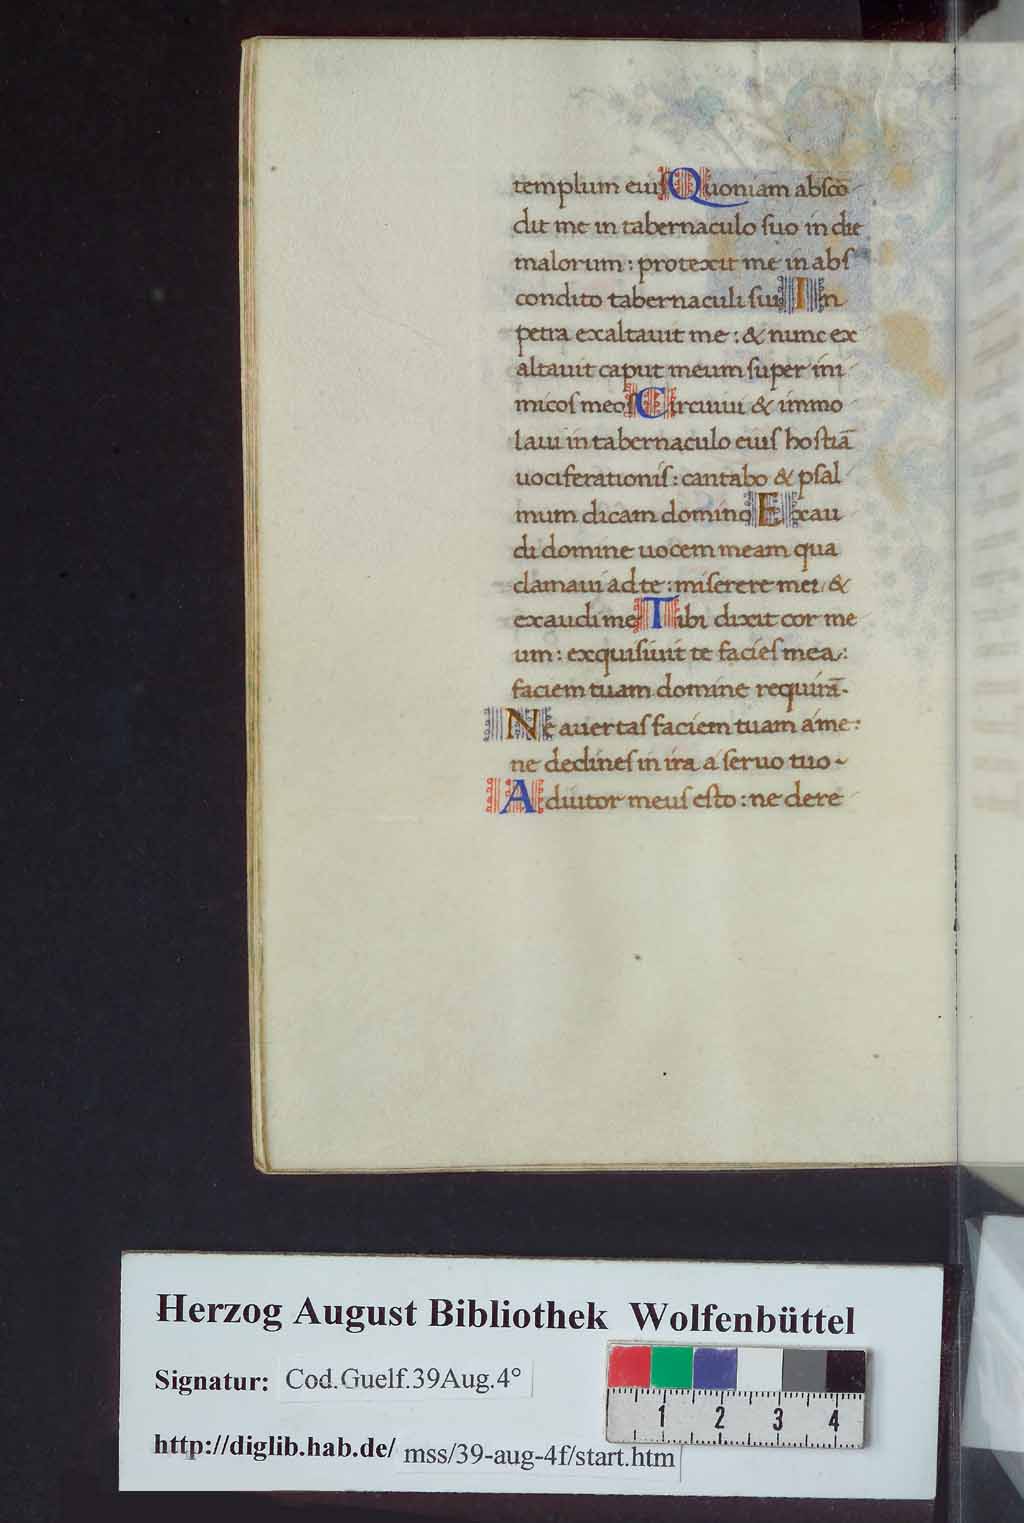 templum eiuſ Quoniam abſcō
dit me in tabernaculo ſuo in die
malorum : protexit me in abſ
condito tabernaculi ſui In
petra exaltauit me : & nunc ex
altauit caput meum ſuper ini
micoſ meoſ Circuiui & immo
laui in tabernaculo eiuſ hoſtiā
uociferationiſ : cantabo & pſal
mum dicam domino Exau
di domine uocem meam qua
clamaui ad te : miſerere mei / &
exaudi me Tibi dixit cor me
um : exquiſiuit te facieſ mea :
faciem tuam domine requirā.
Ne auertaſ faciem tuam a me :
ne declineſ in ira a ſeruo tuo ~
Adiutor meuſ eſto : ne dere
Herzog August Bibliothek Wolfenbüttel
Signatur: Cod.Guelf.39Aug.4°
1 2 3 4
http://diglib.hab.de/ mss/39-aug-4f/start.htm